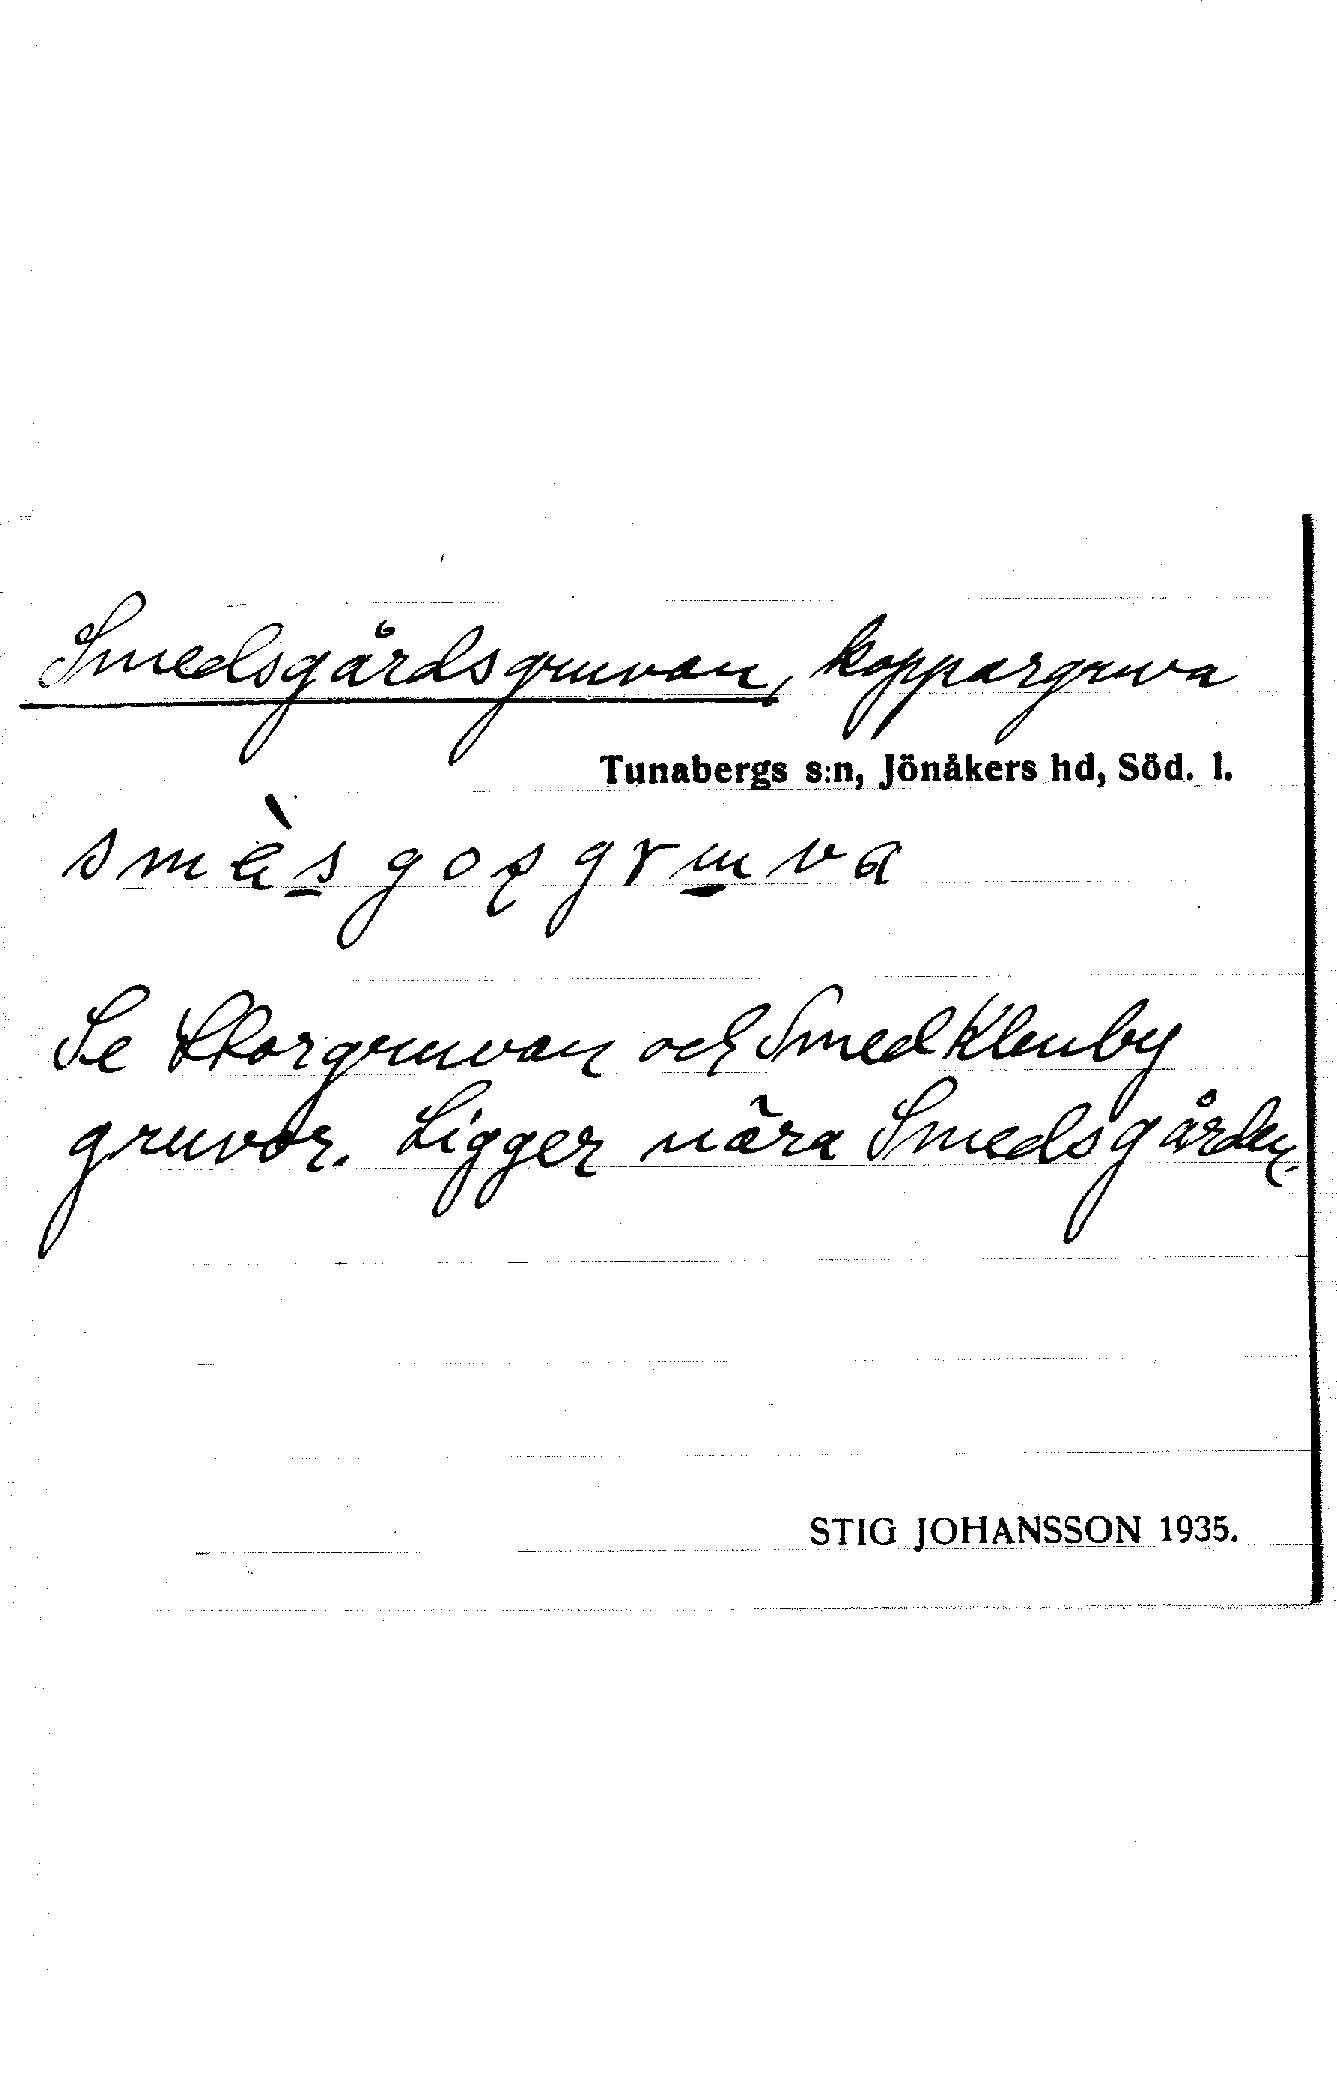 Smedsgårdsgruvan, koppargruva
Tunabergs s:n, Jönåkers hd, Söd. l.
Se Storgruvan och Smedklenby
gruvor. Ligger nära Smedsgården.
STIG JOHANSSON 1935.